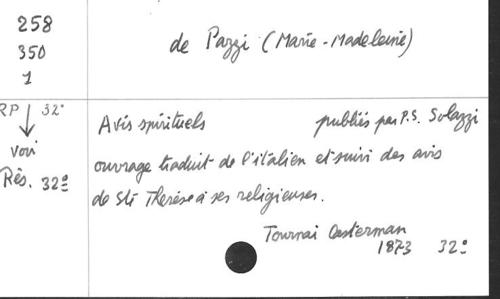 258
350
1
de Pazzi (Marie-Madeleine)
RP ↓ 32°
voir
Rés. 32º
Avis spirituels publiés par P.S. Solazzi
ouvrage traduit de l'italien et suivi des avis
de Ste Thérèse à ses religieuses.
Tournai Casterman
1873 32º